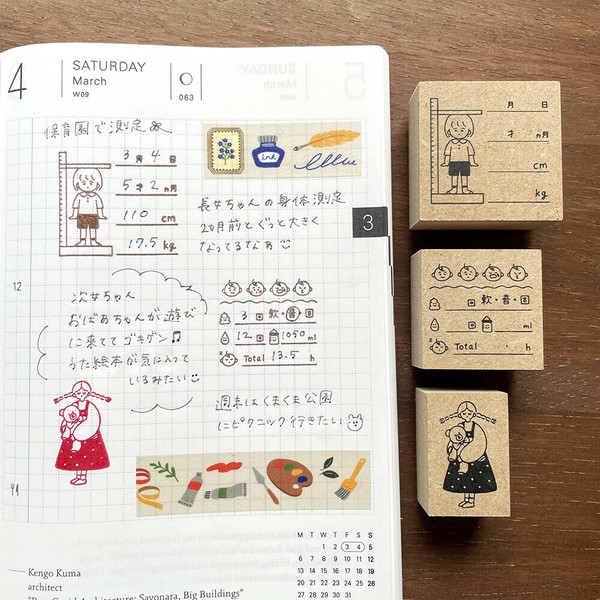 4
SATURDAY
March
W09
063
保育園で測定
3月4日
5才2ヵ月
110cm
17.5kg
ink
長女ちゃんの身体測定
2ヵ月前とぐっと大きく
なってるなぁ
3
12
次女ちゃん
おばあちゃんが遊び
に来ててゴキゲン♫
うた絵本が気に入って
いるみたい
3回 軟・普・固
12回 1050ml
Total 13.5h
週末はくまくま公園
にピクニック行きたい
M T W T F S S
1 2 3 4 5
6 7 8 9 10 11 12
13 14 15 16 17 18 19
20 21 22 23 24 25 26
27 28 29 30 31
Kengo Kuma
architect
"Post-Covid Architecture: Sayonara, Big Buildings"
月 日
才 ヵ月
cm
kg
回 軟・普・固
回 ml
Total . h